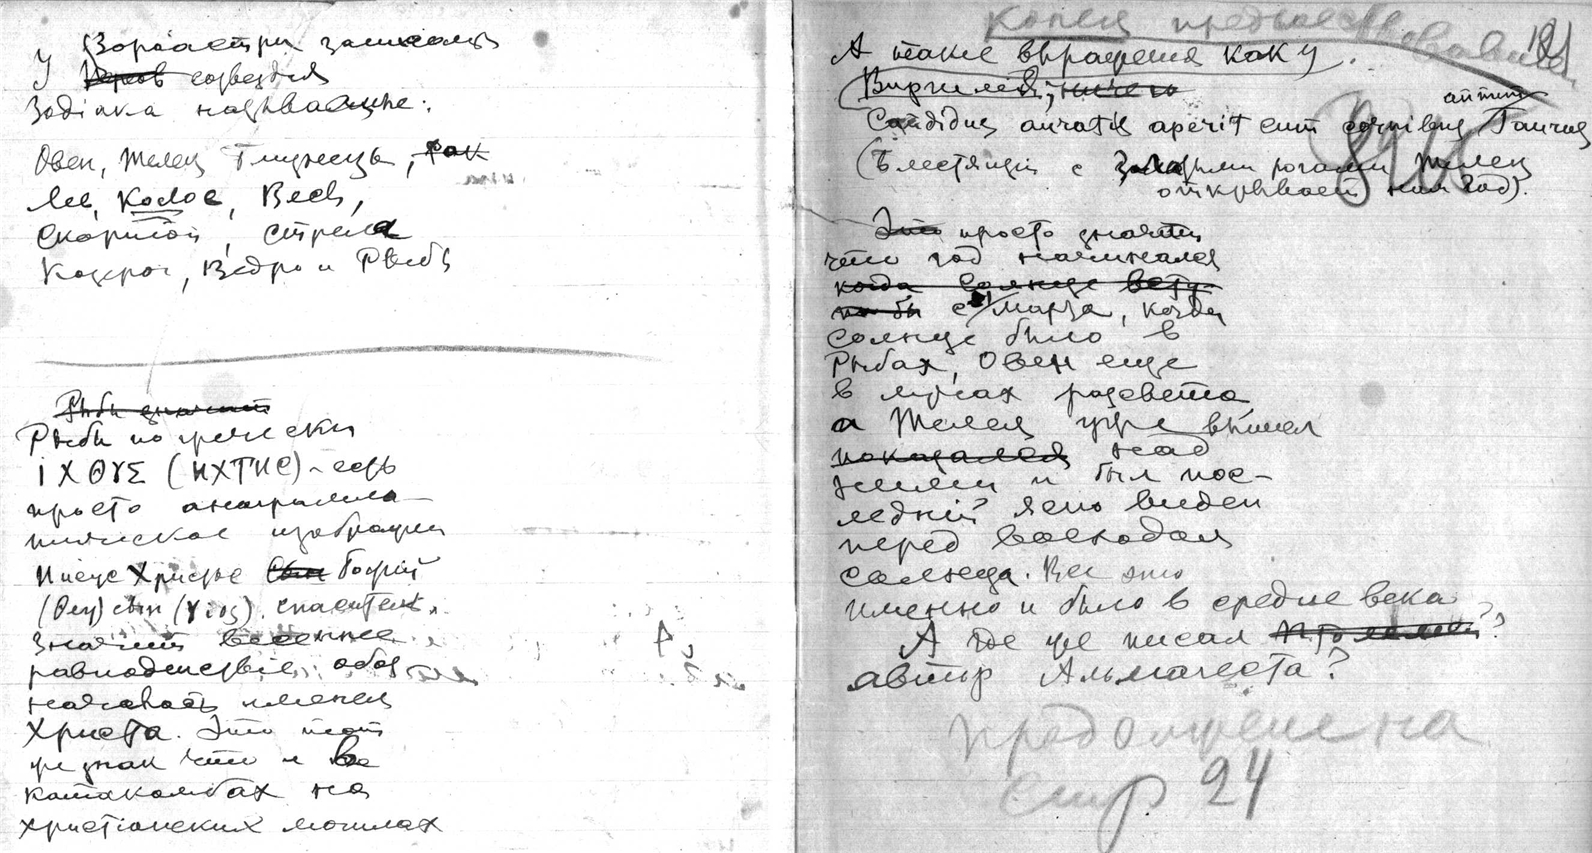 У Зороастри
У Перков созвездия
Зодіака называемые:
Овен, Телец, Близнецы, Рак
Лев, Колос, Весы,
Скорпіон, Стрела
Козерог, Ведро и Рыбы
Рыбы значит
Рыбы по гречески
ΙΧΘΥΣ (ИХТИС) - есть
просто анаграмма-
тическое изображен
Иисус Христос Сын Божій
сын (γιος) спаситель.
Значит весеннее
равноденствіе обоз
началось именем
Христа. Это тот
же знак что и в
катакомбах на
христіанских могилах
конец предшествовавшаго
А такие выражения как у
(Виргилія, ничего
Candidus auratis aperit cum cornibus annum Taurus
(Блестящій с Золотыми рогами Телец
открывает нам год).
Это просто значит
что год начинался
когда солнце всту-
с марта, когда
солнце было в
Рыбах, Овен еще
в лучах разсвета
а Телец уже вышел
показался над
землей и был пос-
ледній ясно виден
перед восходом
солнца. Все это
именно и было в средние века
А где же писал Птолемей??
автор Альмагеста?
продолжение на
стр 24